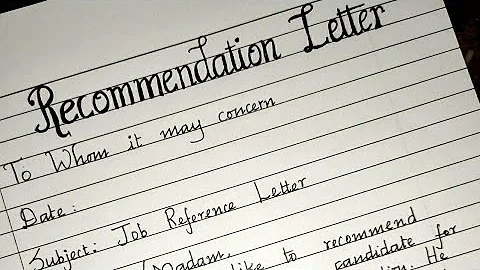 Recommendation Letter
To Whom it may concern
Date:
Subject: Job Reference Letter
Madam,
like to recommend
candidate for
He